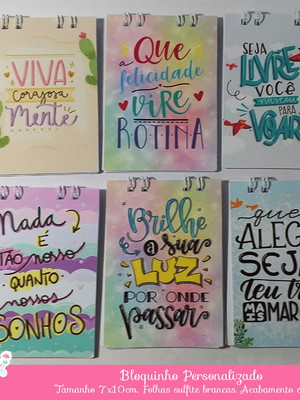 VIVA
corajosa
Mente
Que
a felicidade
vire
ROTINA
SEJA
LIVRE
VOCÊ
nasceu
PARA
VOAR
Nada
É
TÃO nosso
QUANTO
nossos
SONHOS
Brilhe
a sua
LUZ
POR ONDE
passar
que
ALEG
SEJ
teu
MAR
Bloquinho Personalizado
Tamanho 7x10cm. Folhas sulfite brancas. Acabamento